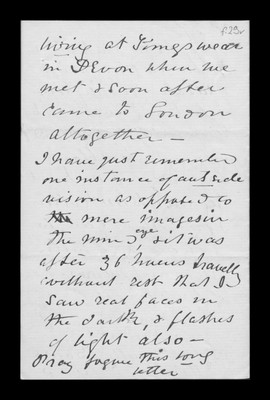 f.29v
living at Kingswear
in Devon when we
met & soon after
came to London
altogether —
I have just remembered
one instance of outside
vision as opposed to
mere images in
the mind's eye, & it was
after 36 hours travelly
without rest that I
saw real faces in
the dark, & flashes
of light also —
Pray forgive this long
letter